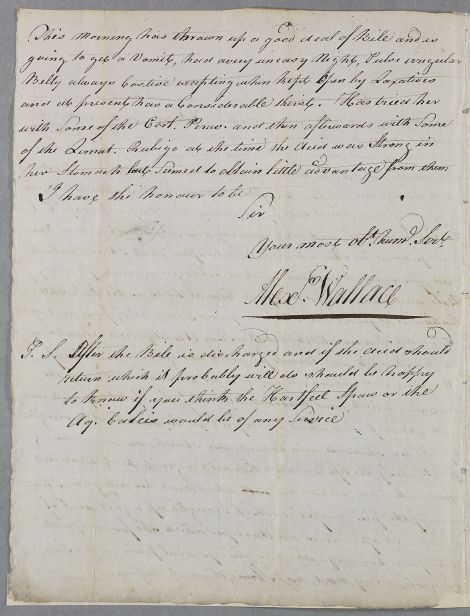 This morning has thrown up a good deal of Bile and is
going to get a Vomit, had a very uneasy Night, Pulse irregular
Belly always Costive excepting when kept Open by Laxatives
and at present has a Considerable thirst. Has tried her
with Some of the Cort. Peruv. and then afterwards with Some
of the Limat. Rubigo at the time the Acid was Strong in
her Stomach but Seemed to obtain little advantage from them
I have the honour to be
Sir
Your most obt. humb. Servt.
Alexr. Wallace
P. S. After the Bile is discharged and if the acid should
return which it probably will do should be happy
to know if you think the Hartfell Spaw or the
Aq. Calcis would be of any Service